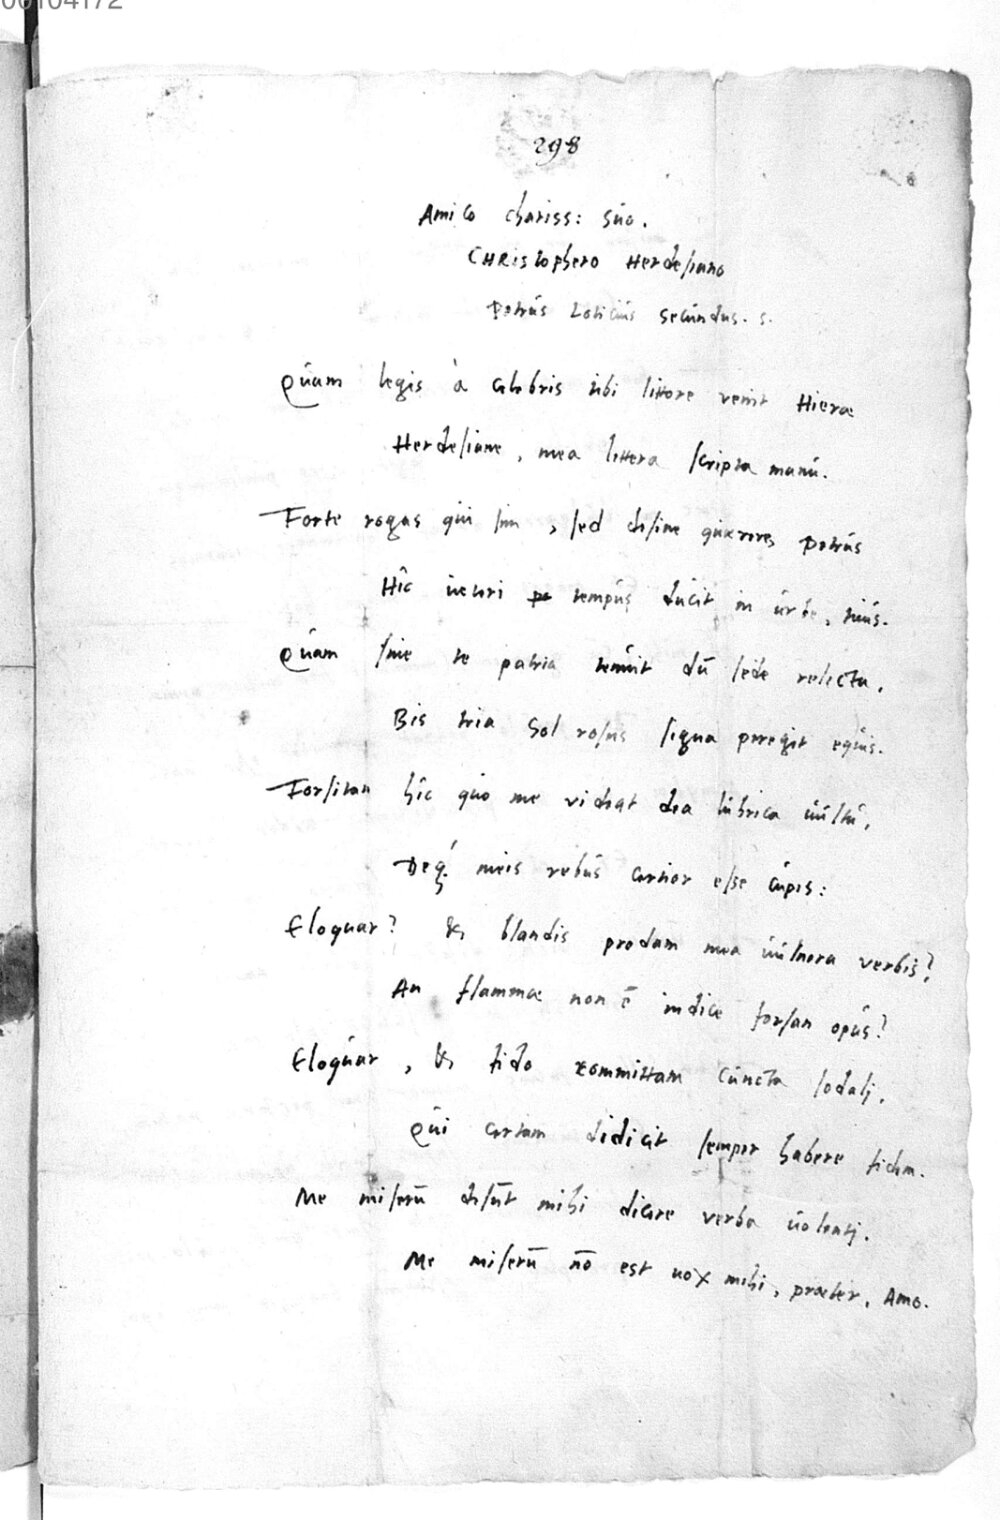 00104172
298
Amico chariss: suo.
CHRistophero Herdesiano
Petrus Lotichius Secundus. s.
Quam legis à celebris tibi littore venit Hierae
Herdesiane, mea littera scripta manu.
Forte rogas qui sim, sed desine quaerere, Petrus
Hîc veteri tempus ducit in urbe, tuus.
Quam sine te patria tenuit dū sede relicta,
Bis tria Sol rosus signa peregit equis.
Forsitan hîc quo me videat dea lubrica vultu,
Deq́; meis rebus certior esse cupis:
Eloquar? & blandis prodam mea vulnera verbis?
An flammae non ē indice forsan opus?
Eloquar, & fido committam cuncta sodalj,
Qui certam didicit semper habere fidem.
Me miserū desūt mihi dicere verba volentj.
Me miserū nō est vox mihi, praeter, Amo.